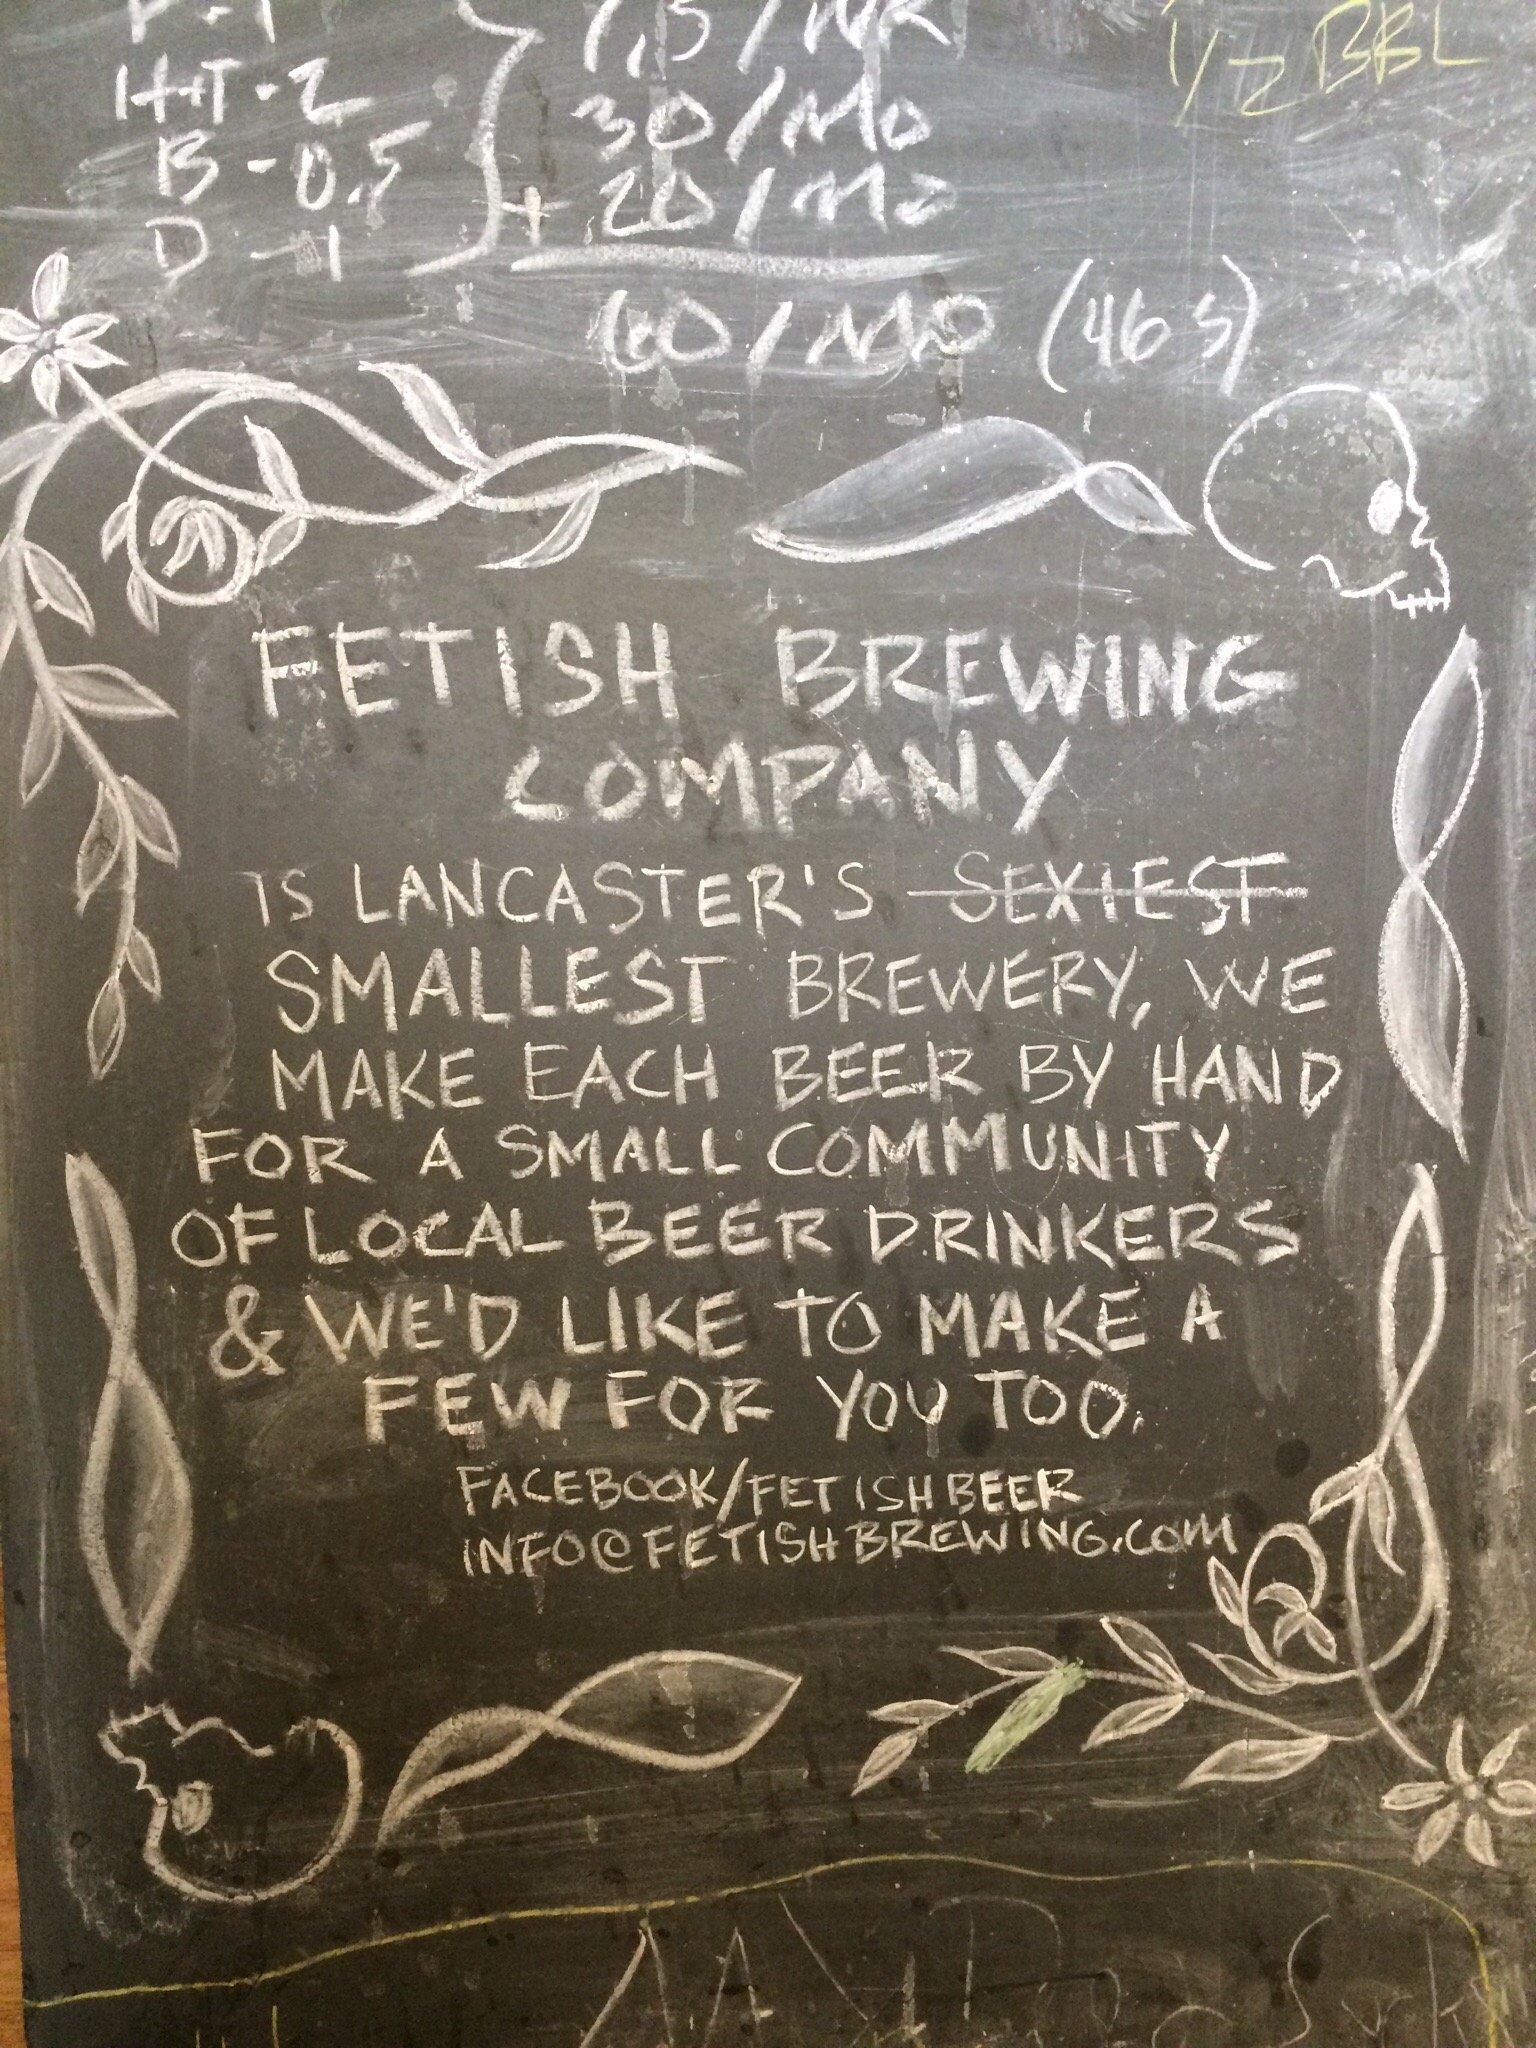 HHT - 2
B - 0.5
D - 1
7.5 / WK
30 / MO
+ 20 / MO
60 / MO (46 5)
1/2 BBL
FETISH BREWING
COMPANY
IS LANCASTER'S SEXIEST
SMALLEST BREWERY, WE
MAKE EACH BEER BY HAND
FOR A SMALL COMMUNITY
OF LOCAL BEER DRINKERS
& WE'D LIKE TO MAKE A
FEW FOR YOU TOO.
FACEBOOK/FETISHBEER
INFO@FETISHBREWING.COM